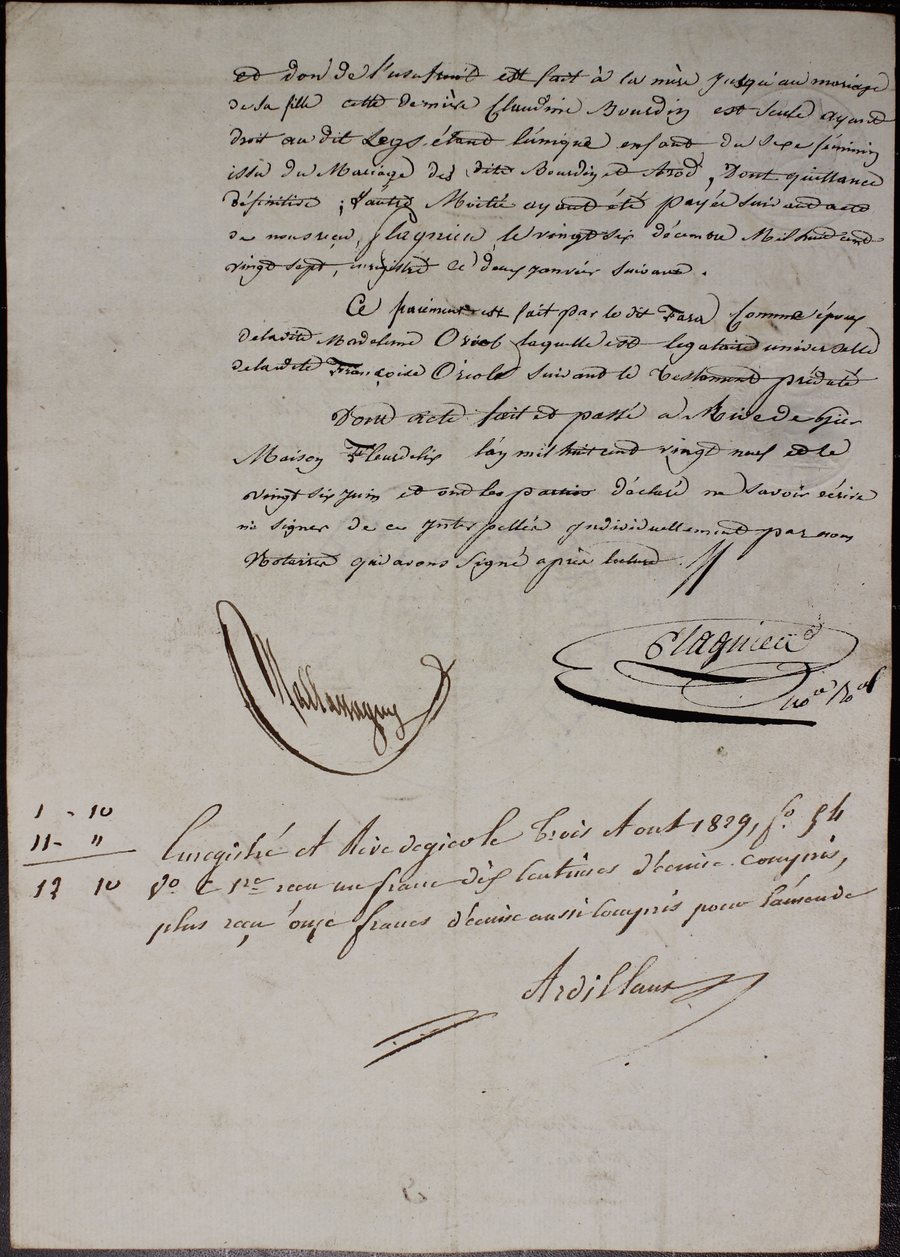 et don de l'usufruit est fait à la mère jusqu'au mariage
de sa fille cette dernière Claudine Bourdin est seule ayant
droit au dit Legs étant l'unique enfant du sexe féminin
issu du Mariage des dits Bourdin et Arod, Dont quittance
définitive ; l'autre Moitié ayant été payée suivant acte
de nous reçu, Plagnieu le vingt six décembre Mil huit cent
vingt sept, enregistré le deux janvier suivant.
Ce paiement est fait par le dit Fara Comme époux
de la dite Madeleine Oriol laquelle est legataire universelle
de la dite Françoise Oriole suivant le testament prédaté
Dont acte fait et passé a Rive de Gier
Maison Fleurdelix l'an mil huit cent vingt neuf et le
vingt six juin et ont les parties déclaré ne savoir écrire
ni signer de ce ynterpellée yndividuellement par nous
Notaires qui avons signé après lecture
Plagnieu
1 - 10
11 - "
12 10
Enregistré at Rive de gier le trois Aout 1829, fo. 54
Vo. C 1re recu un franc dix Centimes décime compris,
plus reçu onze francs décime aussi compris pour l'amende
Ardillaux